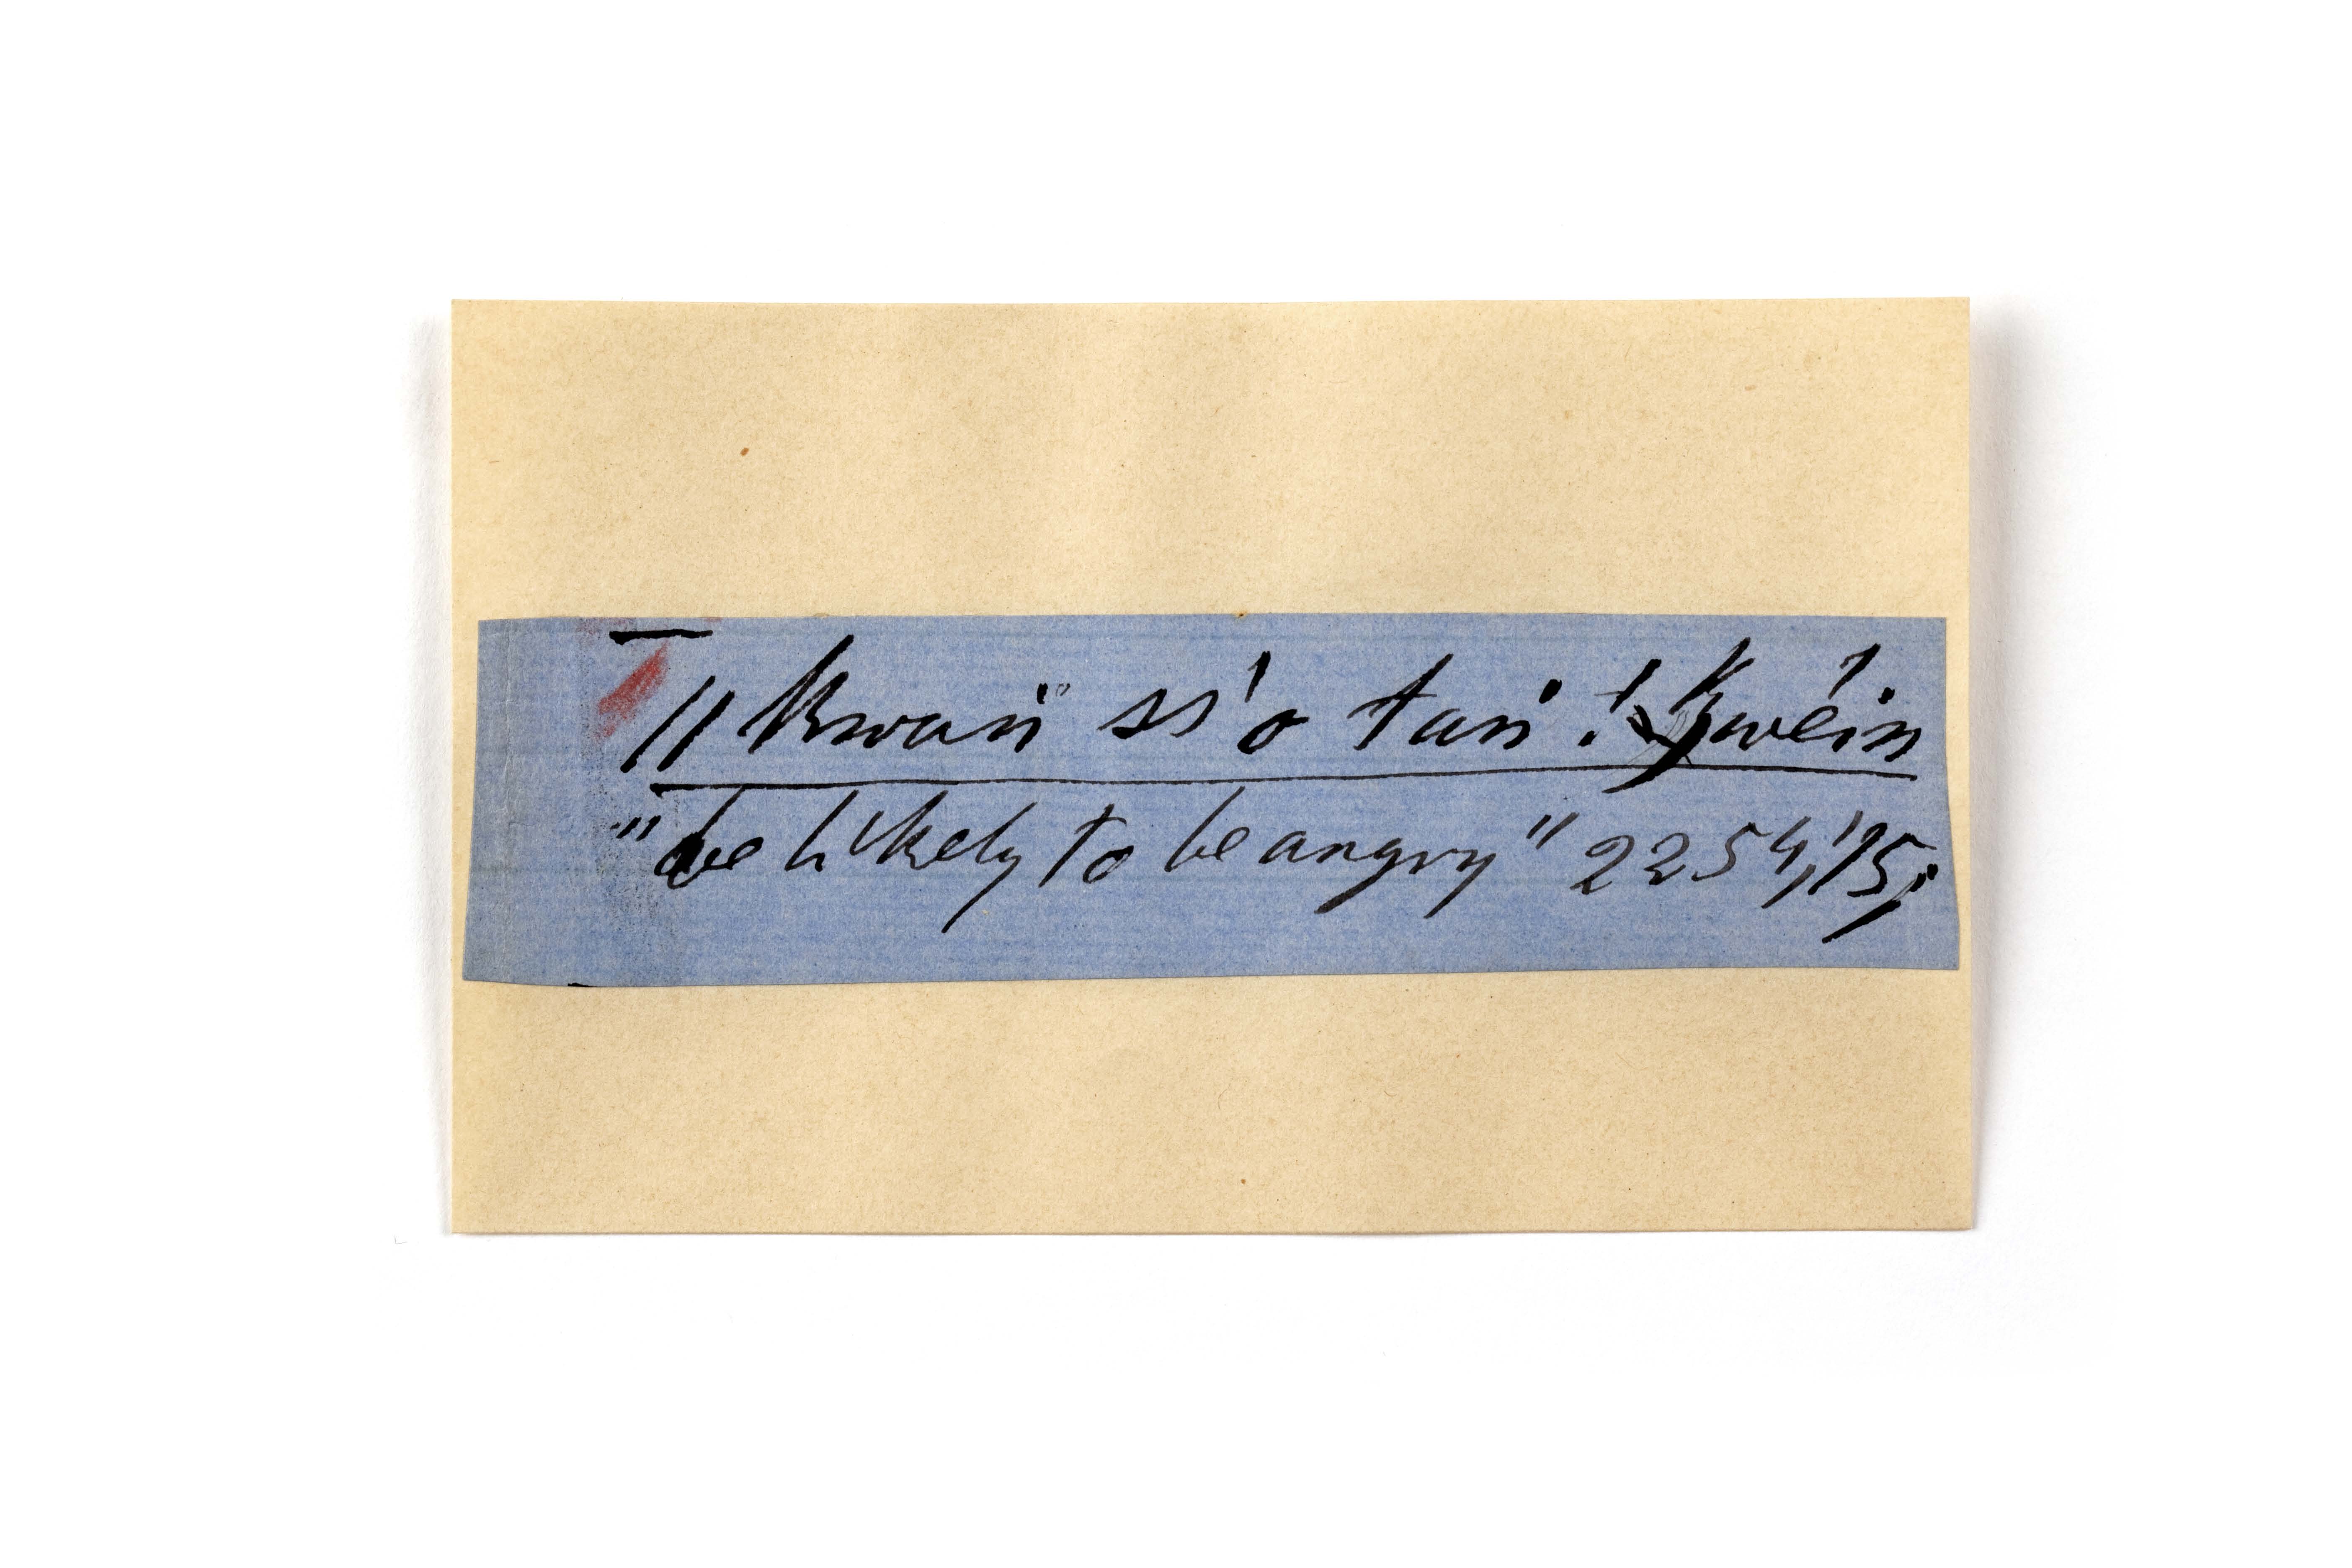 // kwaṅ ss'o taṅ ! kwéin
"be likely to be angry" 2254,'15;